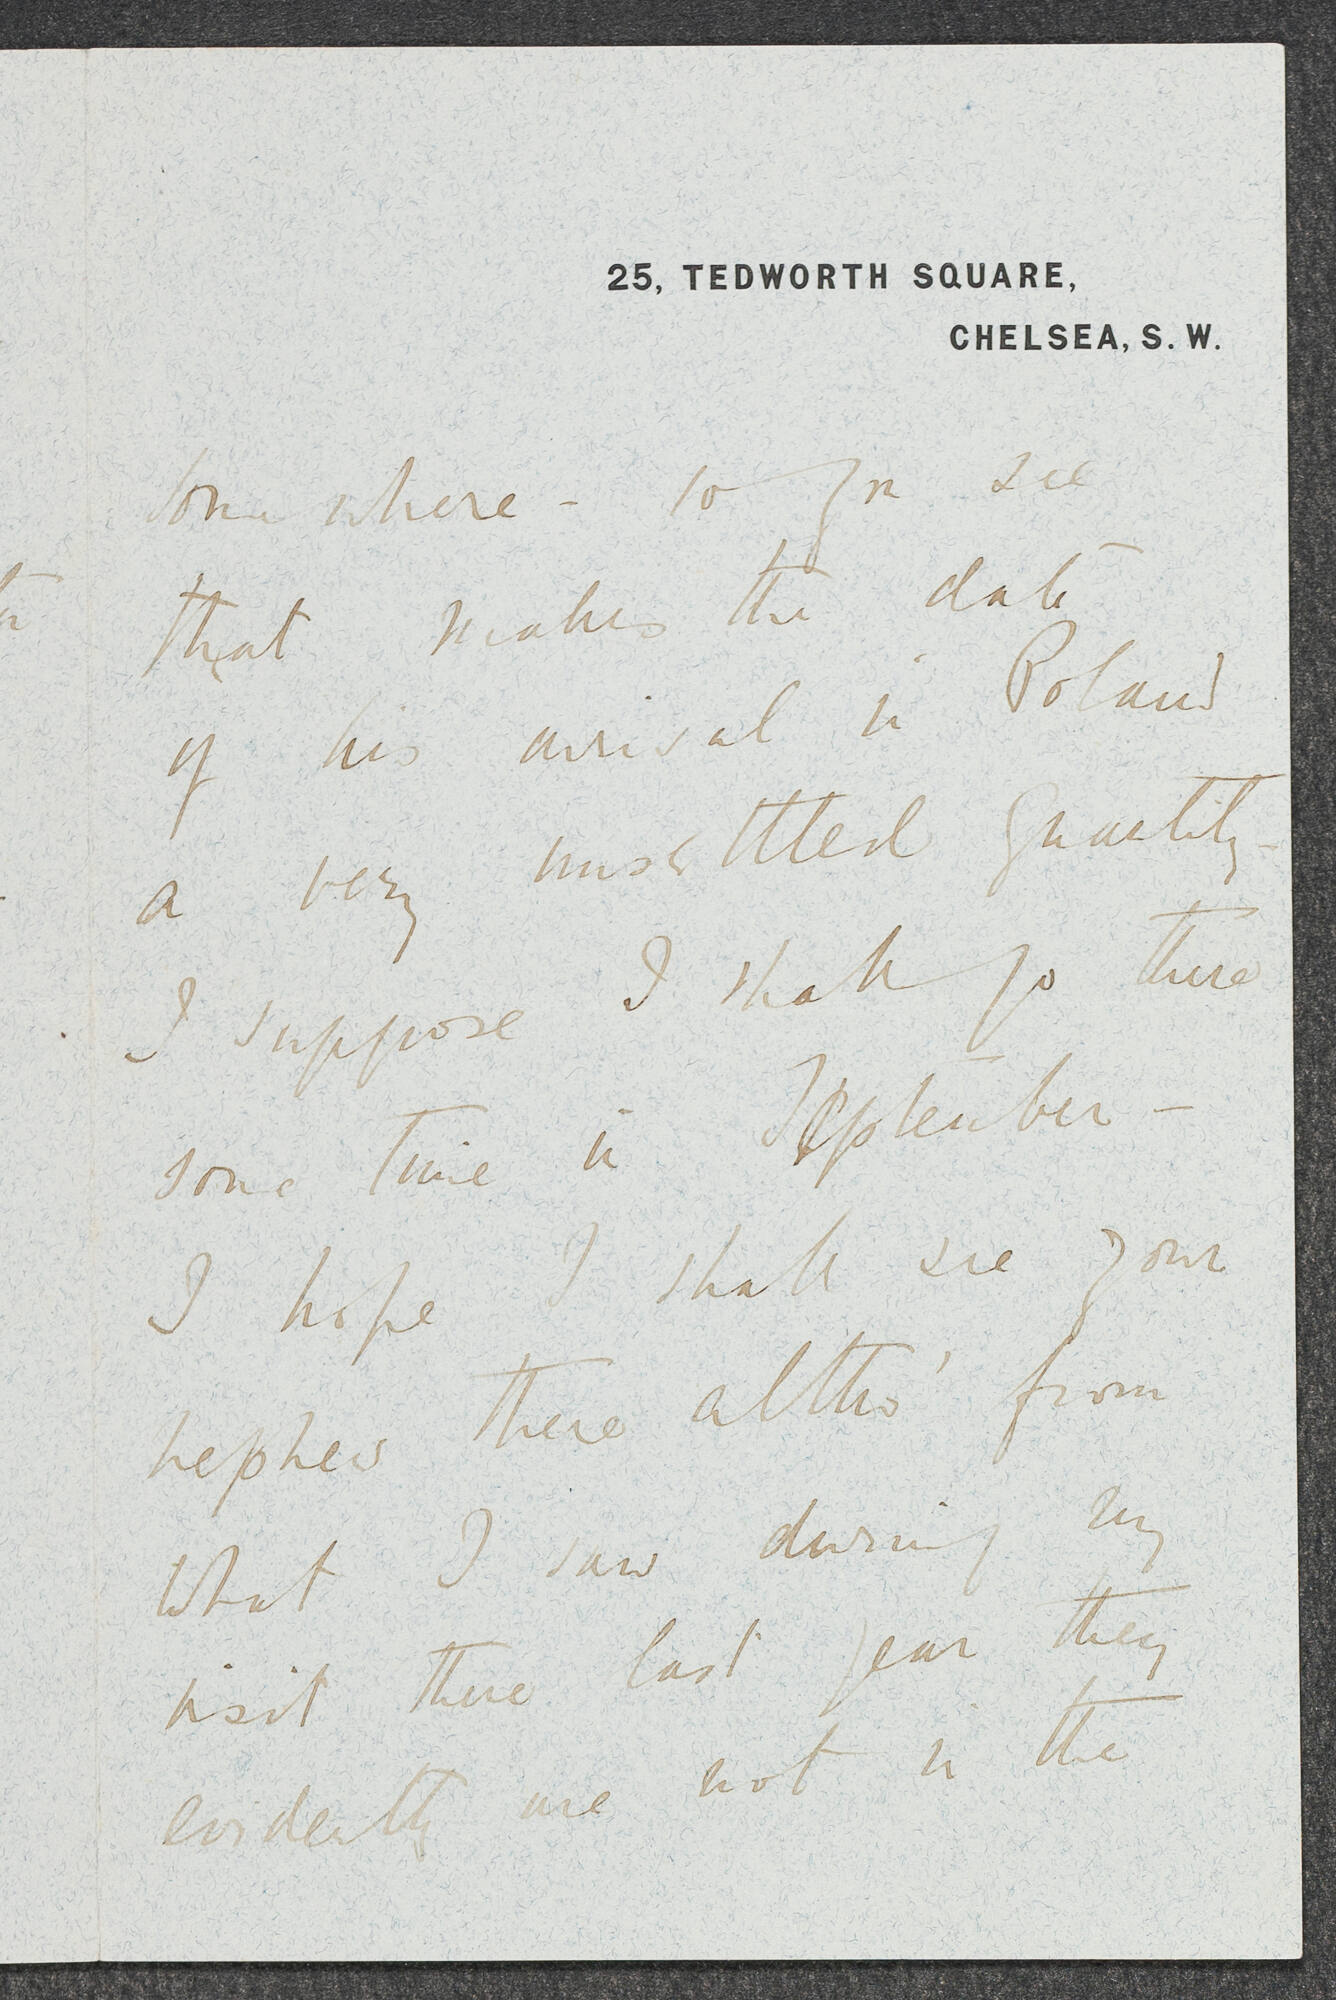 25, TEDWORTH SQUARE,
CHELSEA, S. W.
some where - so you see
that makes the date
of his arrival in Poland
a very unsettled quantity -
I suppose I shall go there
some time in September -
I hope I shall see your
nephew there altho' from
what I saw during my
visit there last year they
evidently are not in the